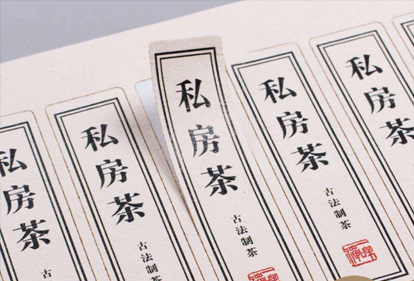 私房茶
古
私房茶
古法制茶
私房茶
古法制茶
私房茶
古法制茶
私房茶